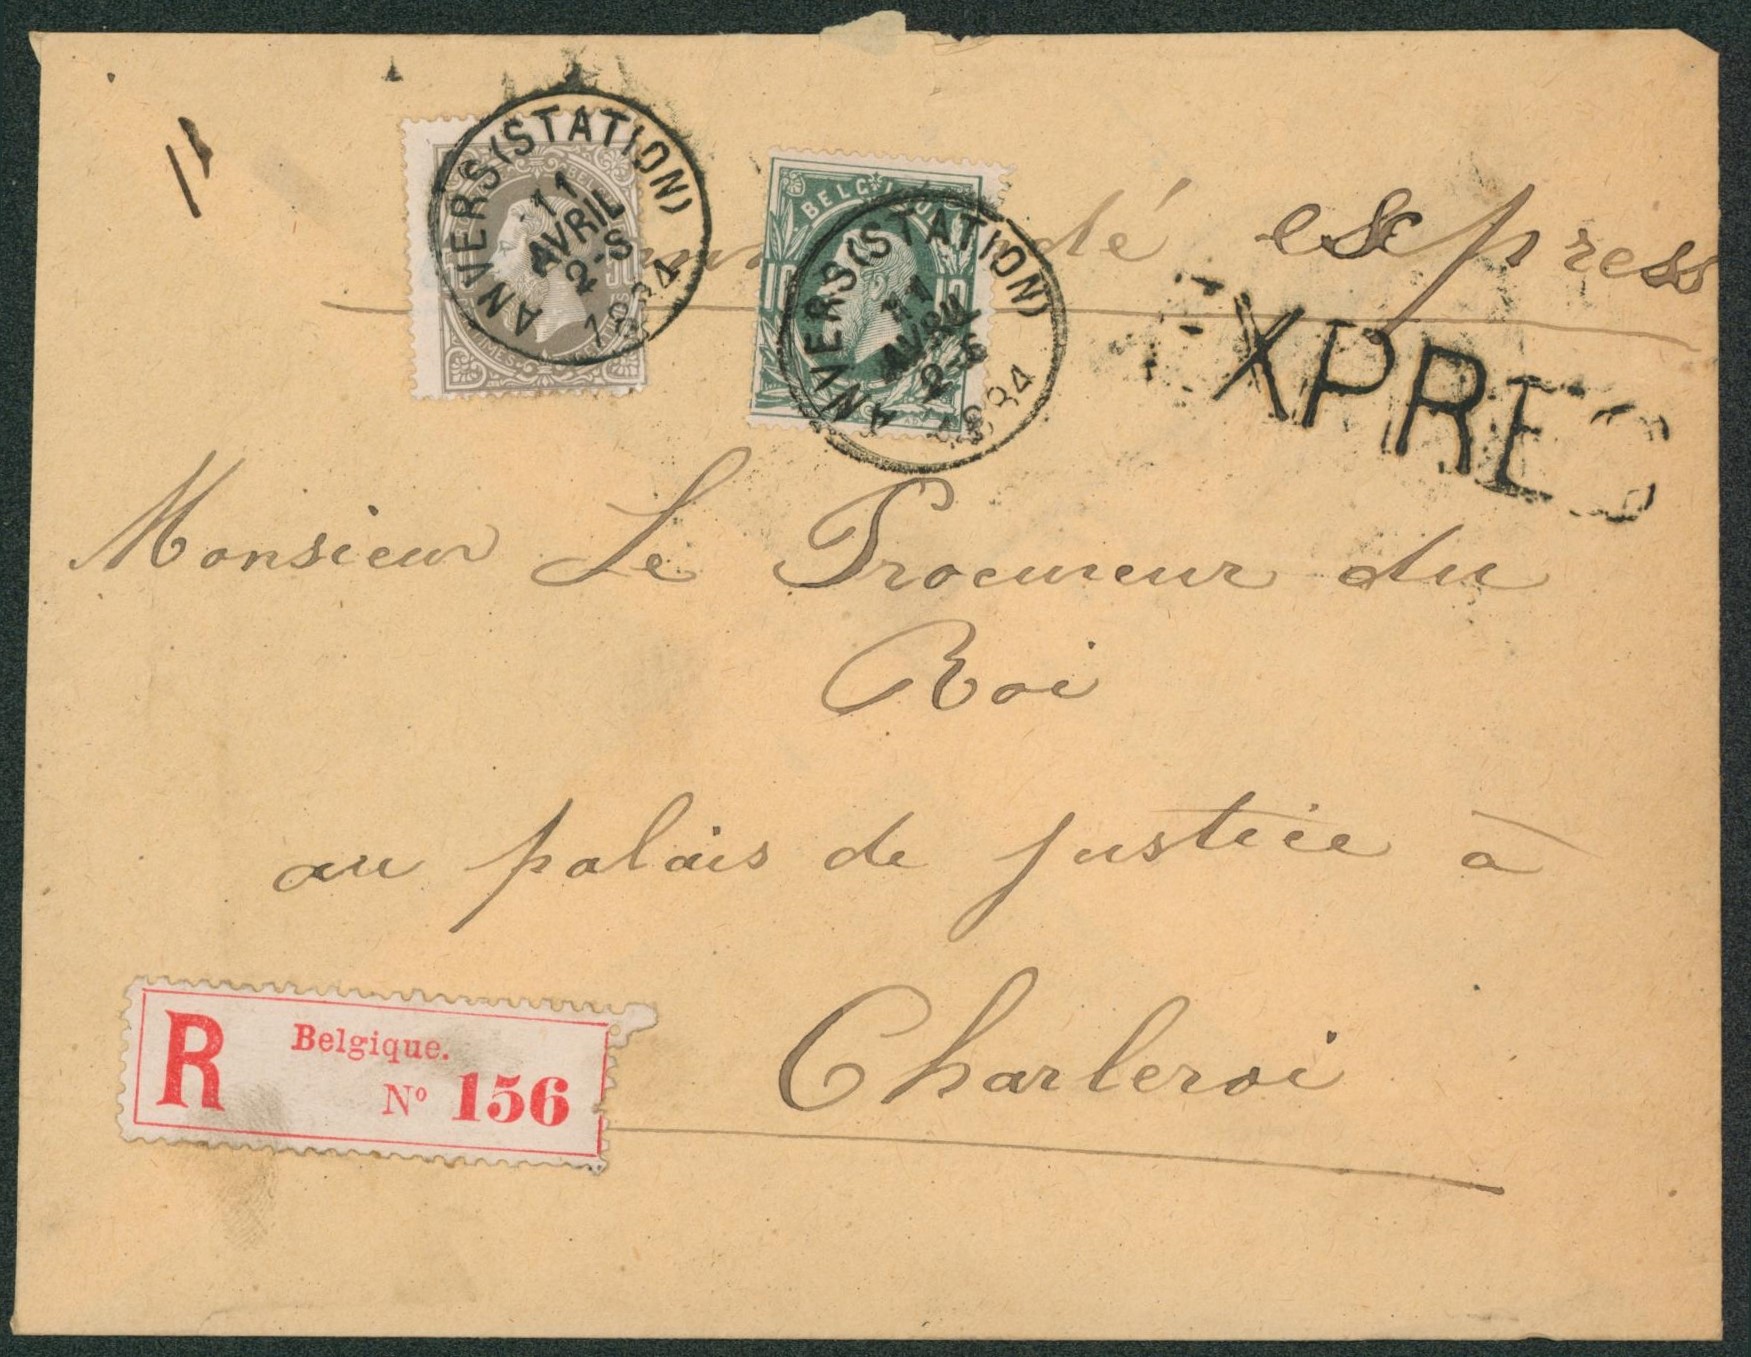 ANVERS (STATION)
11
AVRIL
2-S
1884
BELGIQUE
10 10
ANVERS (STATION)
11
AVRIL
2-S
1884
dé express
EXPRES
Monsieur Le Procureur du
Roi
au palais de justice à
Charleroi
R Belgique.
Nº 156